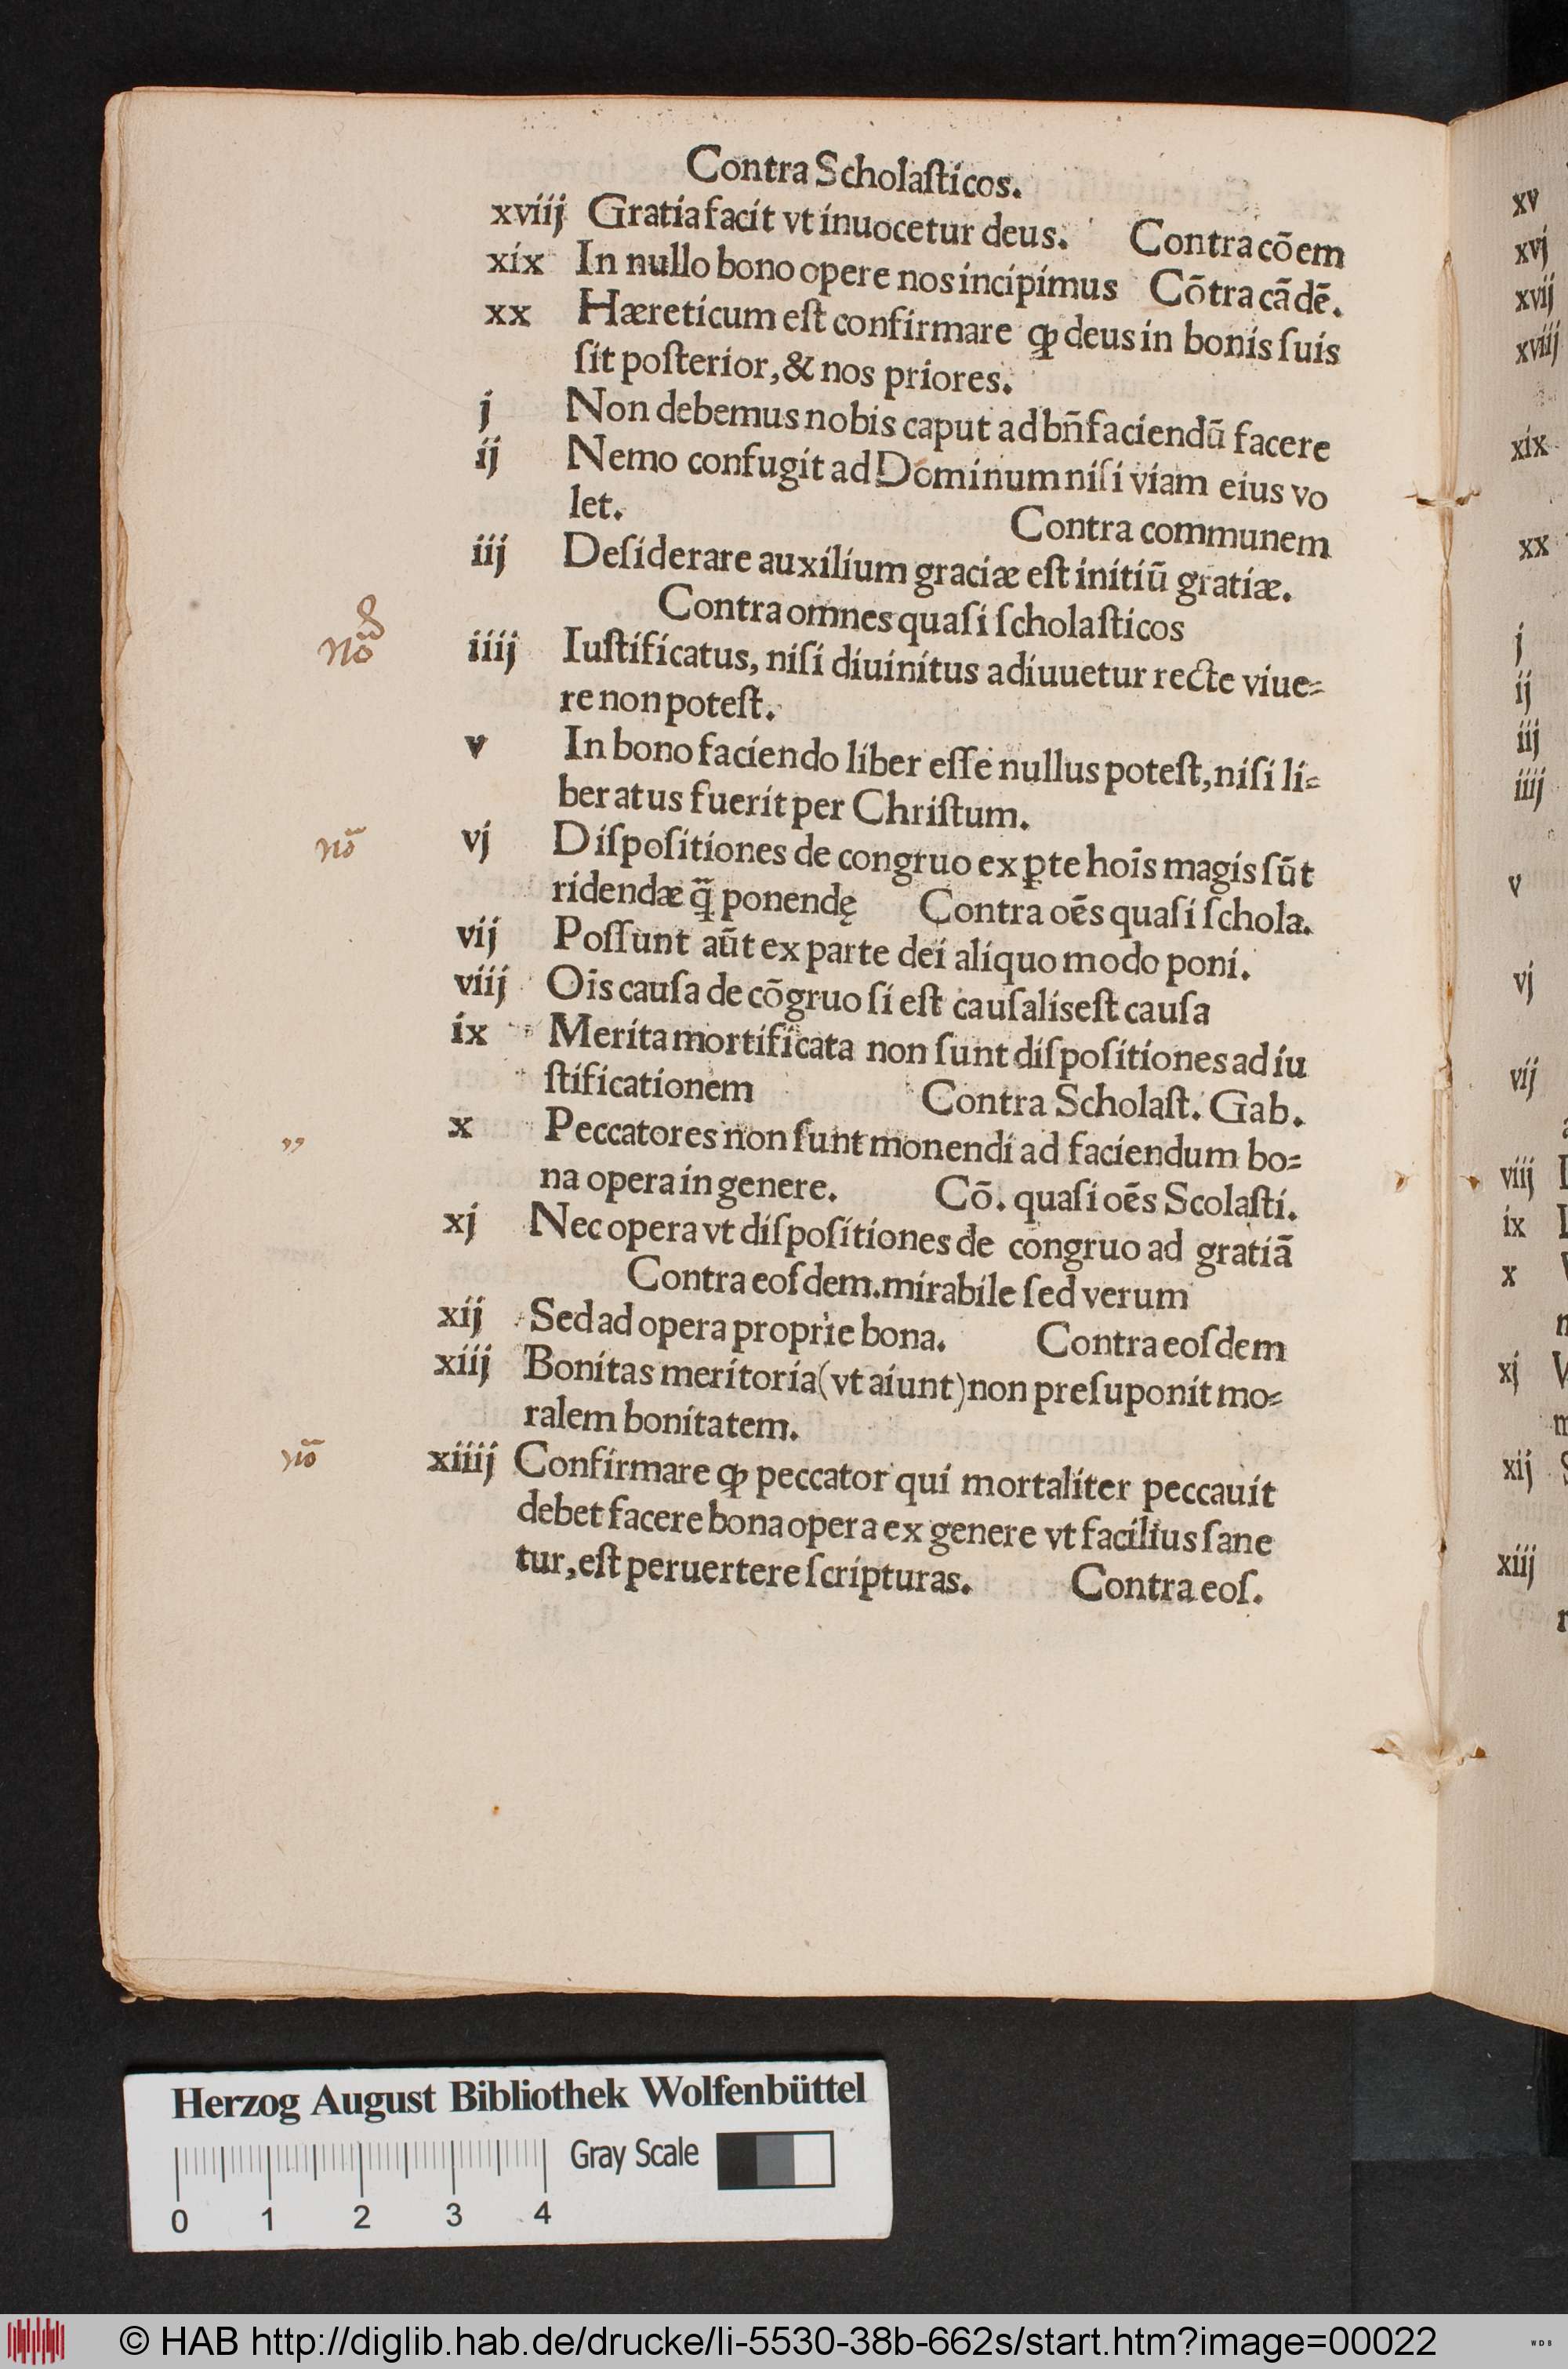 Contra Scholaſticos.
xviij Gratia facit vt inuocetur deus. Contra cōem
xix In nullo bono opere nos incipimus Cōtra cādē.
xx Hæreticum eſt confirmare ꝙ deus in bonis ſuis
ſit poſterior, & nos priores.
j Non debemus nobis caput ad bn̄faciendū facere
ij Nemo confugit ad Dominum niſi viam eius vo
let. Contra communem
iij Deſiderare auxilium graciæ eſt initiū gratiæ.
Contra omnes quaſi ſcholaſticos
iiij Iuſtificatus, niſi diuinitus adiuuetur recte viue⸗
re non poteſt.
v In bono faciendo liber eſſe nullus poteſt, niſi li⸗
beratus fuerit per Chriſtum.
nō vj Diſpoſitiones de congruo ex ꝑte hoīs magis ſūt
ridendæ q̄ꝫ ponendę Contra oēs quaſi ſchola.
vij Poſſunt aūt ex parte dei aliquo modo poni.
viij Oīs cauſa de cōgruo ſi eſt cauſalis eſt cauſa
ix Merita mortificata non ſunt diſpoſitiones ad iu
ſtificationem Contra Scholaſt. Gab.
„ x Peccatores non ſunt monendi ad faciendum bo⸗
na opera in genere. Cō. quaſi oēs Scolaſti.
xj Nec opera vt diſpoſitiones de congruo ad gratiā
Contra eoſdem. mirabile ſed verum
xij Sed ad opera proprie bona. Contra eoſdem
xiij Bonitas meritoria (vt aiunt) non preſuponit mo⸗
ralem bonitatem.
nō xiiij Confirmare ꝙ peccator qui mortaliter peccauit
debet facere bona opera ex genere vt facilius ſane
tur, eſt peruertere ſcripturas. Contra eoſ.
xv
xvj
xvij
xviij
xix
xx
j
ij
iij
iiij
v
vj
vij
viij
ix
x
xj
xij
xiij
Herzog August Bibliothek Wolfenbüttel
Gray Scale
0 1 2 3 4
© HAB http://diglib.hab.de/drucke/li-5530-38b-662s/start.htm?image=00022
WDB